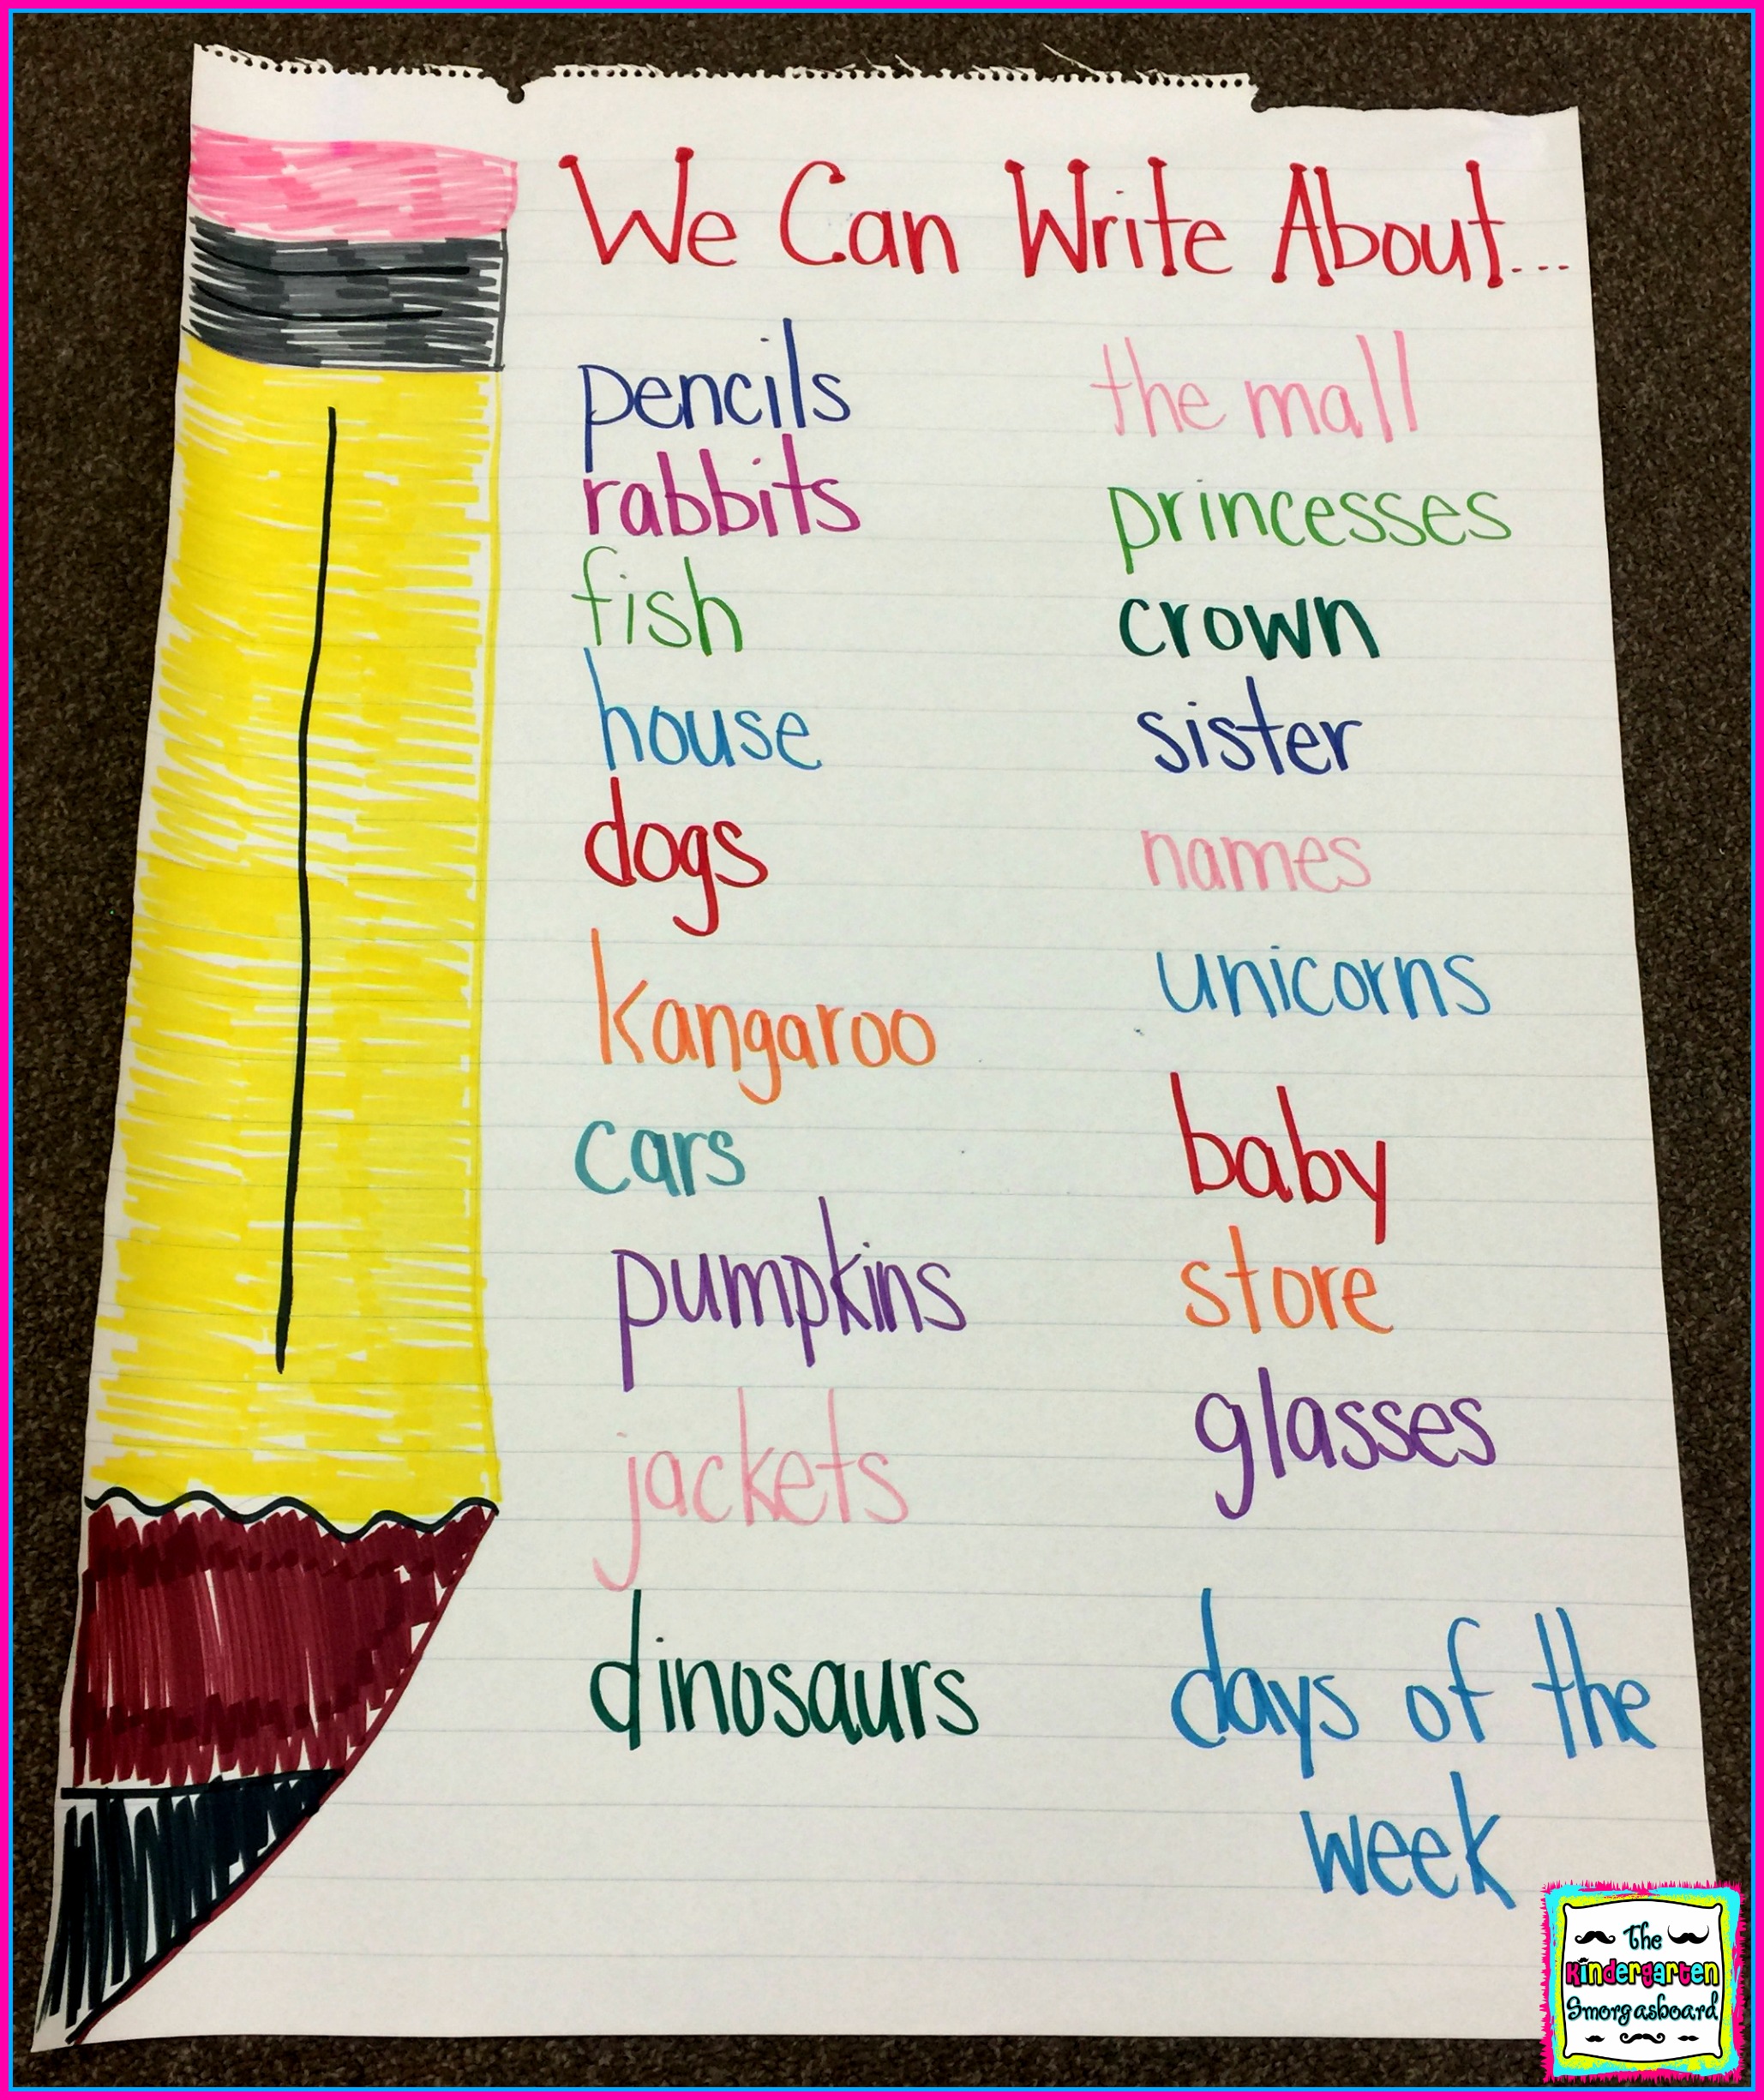 We Can Write About...
pencils
rabbits
fish
house
dogs
kangaroo
cars
pumpkins
jackets
dinosaurs
the mall
princesses
crown
sister
names
unicorns
baby
store
glasses
days of the
week
The
Kindergarten
Smorgasboard